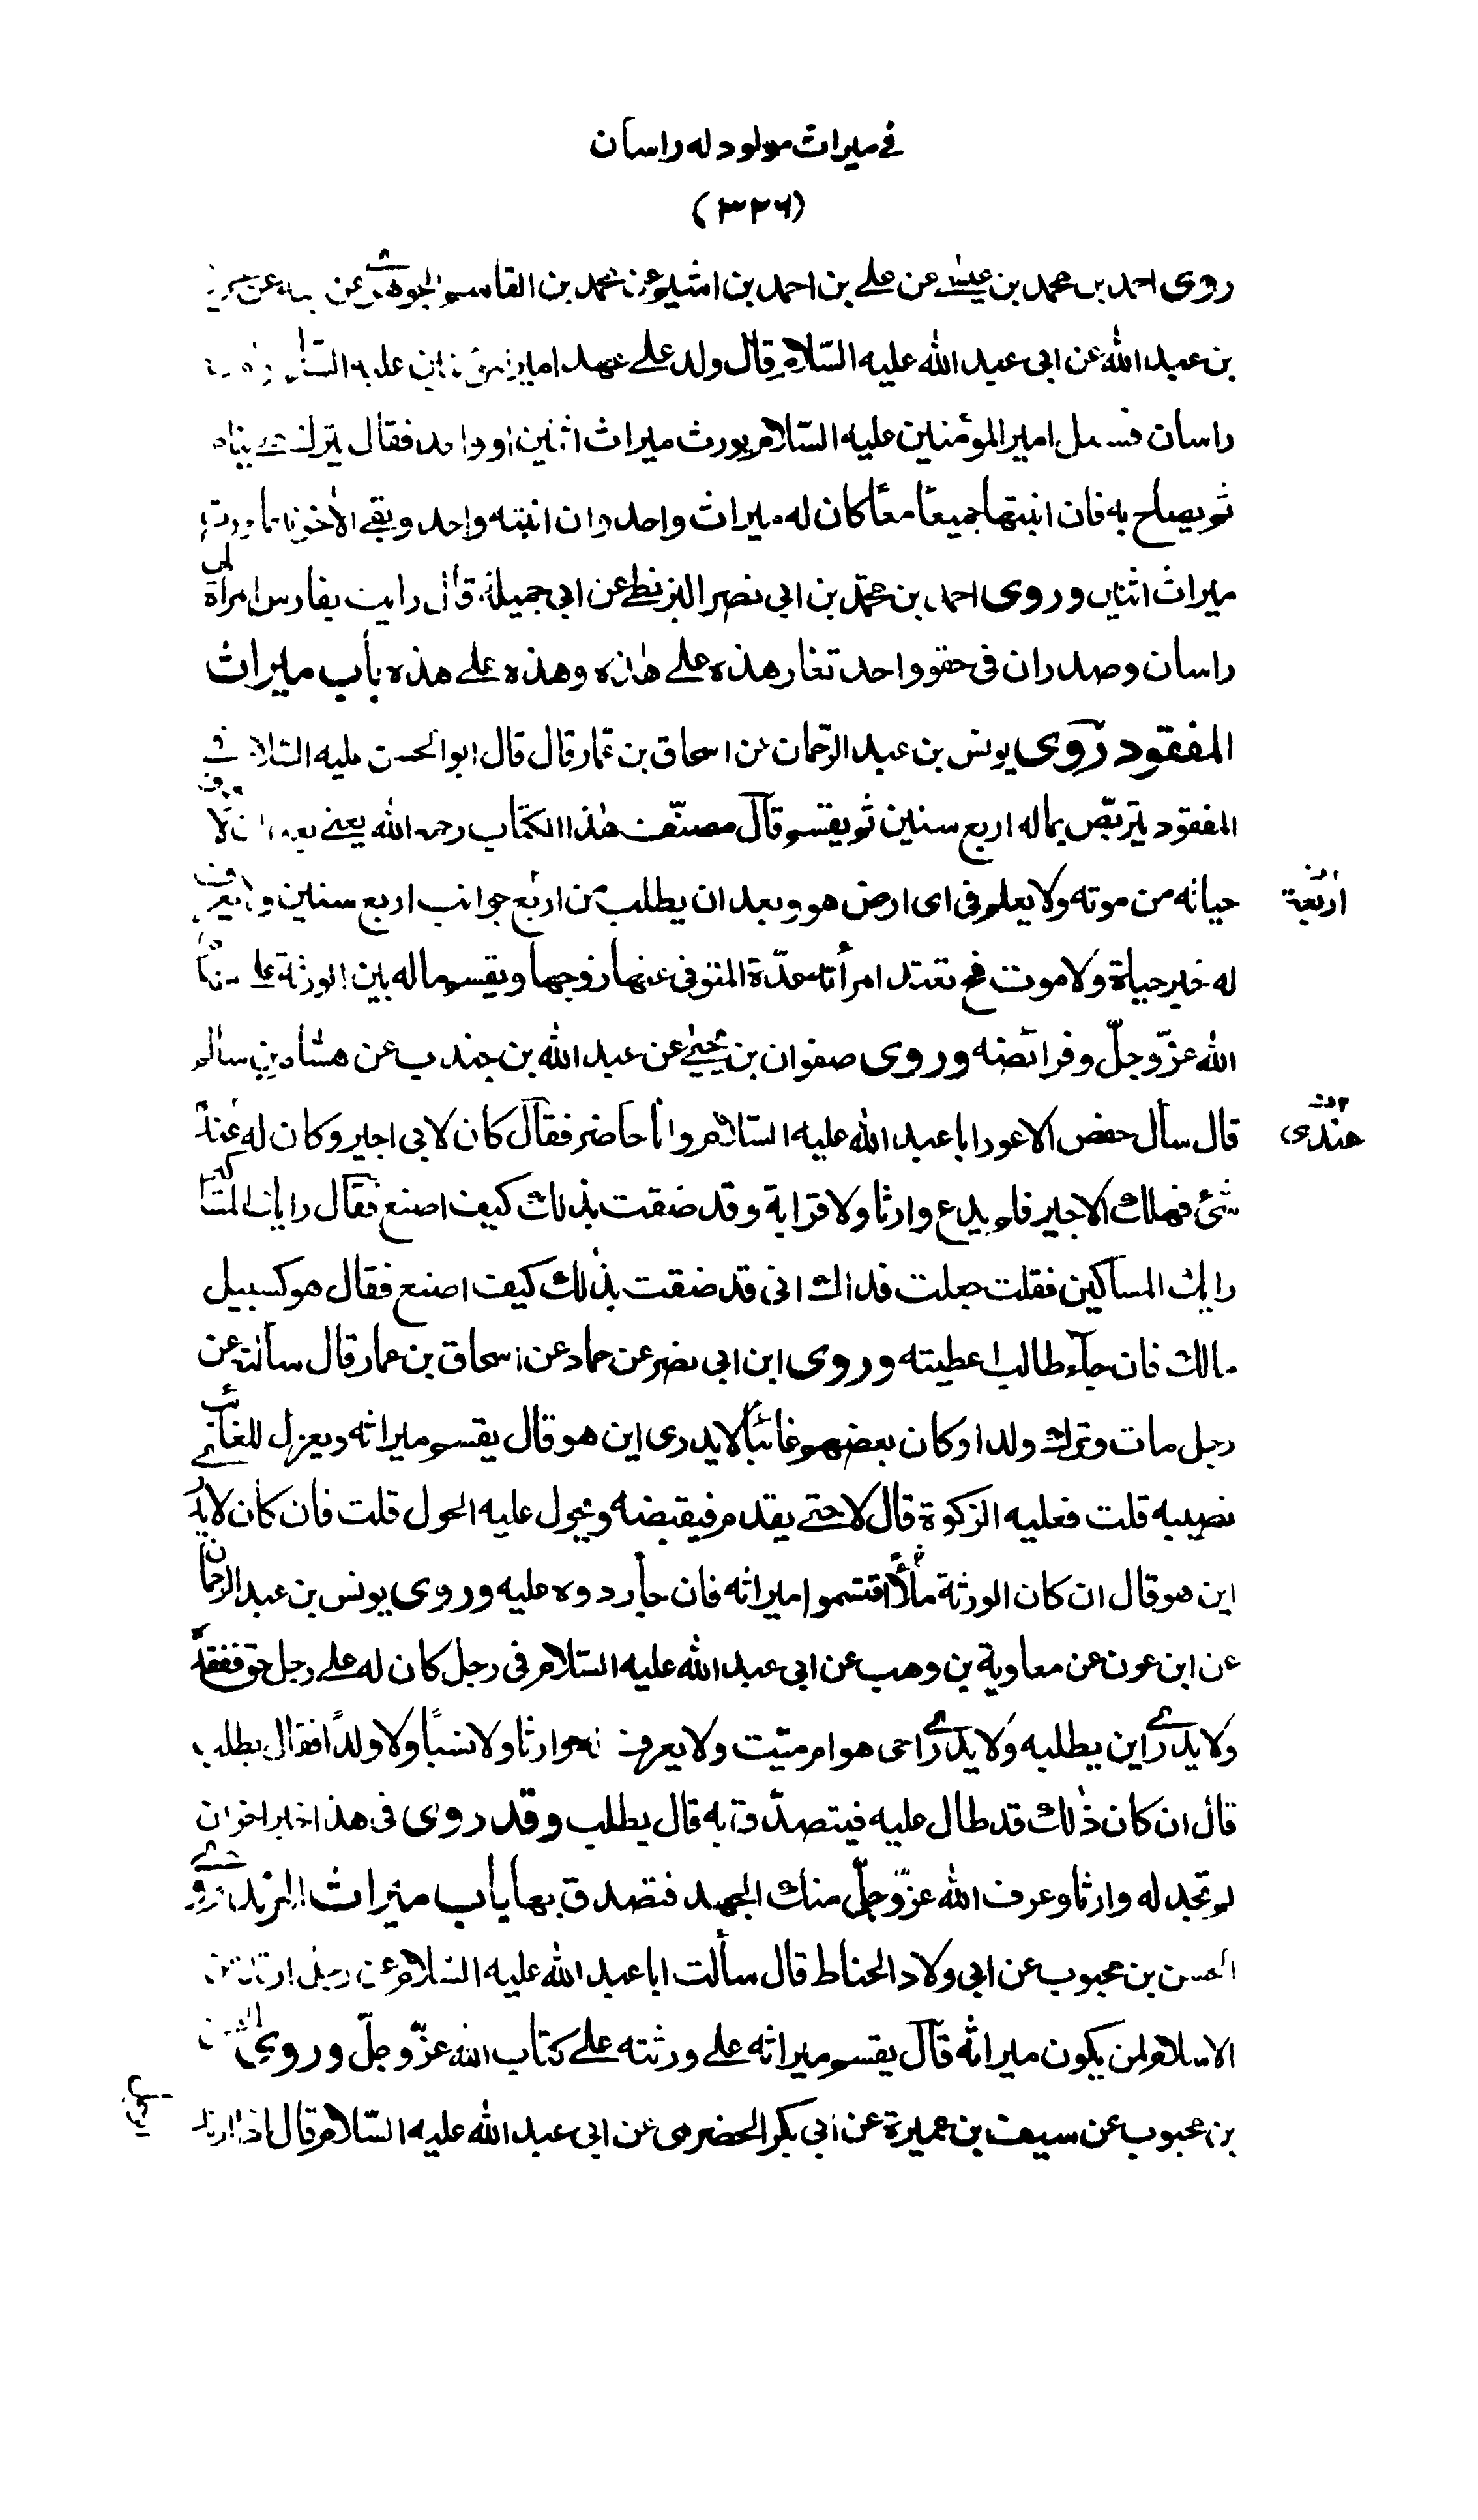 في ميراث مولود له راسان
(٣٢٦)
روى احمد بن محمد بن عيسى عن علي بن احمد بن اشيم عن محمد بن القاسم الجوهري عن ابيه عن حريز
بن عبد الله عن ابى عبد الله عليه السّلام قال ولد على عهد امير المؤمنين عليه السّلام
راسان فسئل امير المؤمنين عليه السّلام يورث ميراث اثنين او واحد فقال يترك حتى ينام
ثم يصاح به فان انبتها جميعًا معًا كان له ميراث واحد وان انبته واحد وبقى الاخر نائما ورث
ميراث اثنين وروى احمد بن محمّد بن ابى نصر البزنطى عن ابى جميلة قال رايت بفارس امراة لها
راسان وصدران فى حقو واحد تغار هذه على هذه وهذه على هذه باب ميراث
المفقود روى يونس بن عبد الرّحمان عن اسحاق بن عمّار قال قال ابو الحسن عليه السّلام في
المفقود يتربّص بماله اربع سنين ثم يقسم قال مصنّف هٰذا الكتاب رحمه الله يعنى بعد ان لا يعرف
حياته من موته ولا يعلم فى اى ارض هو وبعد ان يطلب من اربع جوانب اربع سنين ولا يعرف
اربعة
له خبر حياة ولا موت فح تعتد امرأته عدّة المتوفى عنها زوجها ويقسم ماله بين الورثة على
الله عزّوجلّ وفرائضه وروى صفوان بن يحيى عن عبد الله بن جندب عن هشام بن سالم
قال سأل حفص الاعور ابا عبد الله عليه السّلام وانا حاضر فقال كان لابى اجير وكان له عنده
عندى
شئ فهلك الاجير فلم يدع وارثا ولا قرابة وقد ضقت بذلك كيف اصنع فقال رايك المساكين
رايك المساكين فقلت جعلت فداك انى قد ضقت بذٰلك كيف اصنع فقال هو كسبيل
مالك فان جآء طالب اعطيته وروى ابن ابى نصر عن حماد عن اسحاق بن عمار قال سألته عن
رجل مات وترك ولدا وكان بعضهم غائبًا لا يدرى اين هو قال يقسم ميراثه ويعزل للغائب
نصيبه قلت فعليه الزكوة قال لا حتى يقدم فيقبضه ويحول عليه الحول قلت فان كان لا يدرى
اين هو قال ان كان الورثة ملأ اقتسموا ميراثه فان جآء ردوه عليه وروى يونس بن عبد الرحمان
عن ابن عون عن معاوية بن وهب عن ابى عبد الله عليه السّلام فى رجل كان له على رجل حق ففقده
ولا يدرى اين يطلبه ولا يدرى احى هو ام ميّت ولا يعرف له وارثا ولا نسبًا ولا ولدًا فقال يطلب
قال ان كان ذٰلك قد طال عليه فيتصدّق به قال يطلب وقد روى فى هذا خبر اخر ان
لم تجد له وارثا وعرف الله عزّوجلّ منك الجهد فتصدق بها باب ميراث المرتد روى
الحسن بن محبوب عن ابى ولاد الحناط قال سألت ابا عبد الله عليه السّلام عن رجل ارتد عن
الاسلام لمن يكون ميراثه قال يقسم ميراثه على ورثته على كتاب الله عزّوجلّ وروى الحسن
بن محبوب عن سيف بن عميرة عن ابى بكر الحضرمى عن ابى عبد الله عليه السّلام قال اذا ارتد